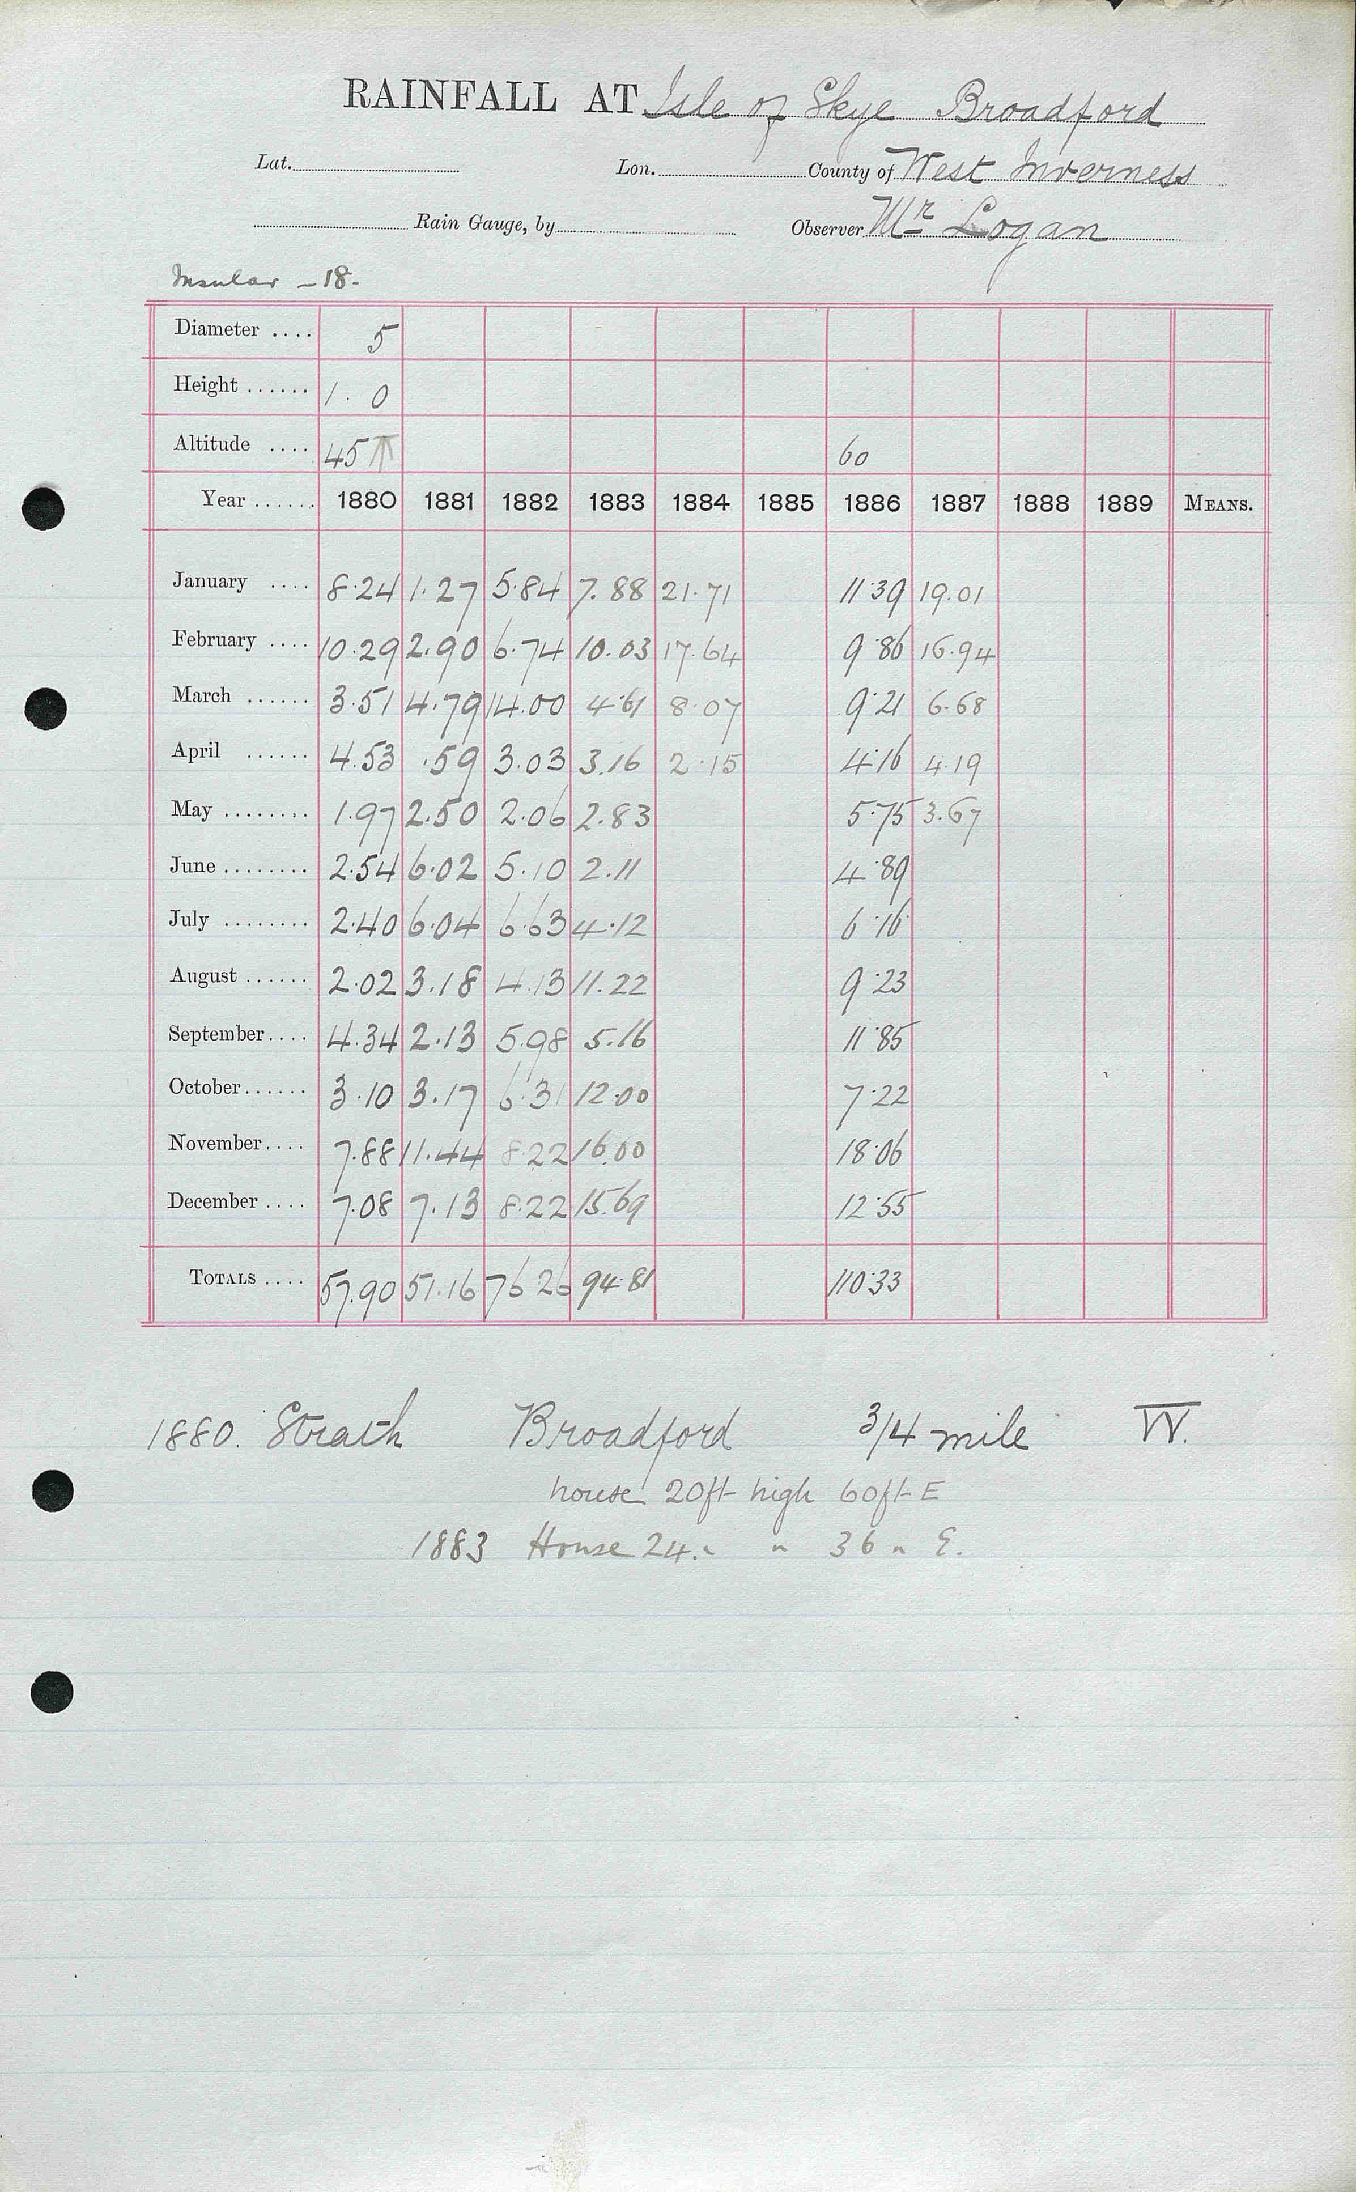 RAINFALL AT Isle of Skye Broadford
Lat. Lon. County of West Inverness
Rain Gauge, by Observer Mr Logan
Insular - 18 -
Diameter .... 5
Height ...... 1. 0
Altitude .... 45 60
Year ...... 1880 1881 1882 1883 1884 1885 1886 1887 1888 1889 MEANS.
January .... 8.24 1.27 5.84 7.88 21.71 11.39 19.01
February .... 10.29 2.90 6.74 10.03 17.64 9.86 16.94
March ...... 3.51 4.79 14.00 4.61 8.07 9.21 6.68
April ...... 4.53 .59 3.03 3.16 2.15 4.16 4.19
May ........ 1.97 2.50 2.06 2.83 5.75 3.67
June ........ 2.54 6.02 5.10 2.11 4.89
July ........ 2.40 6.04 6.63 4.12 6.16
August ...... 2.02 3.18 4.13 11.22 9.23
September .... 4.34 2.13 5.98 5.16 11.85
October ...... 3.10 3.17 6.31 12.00 7.22
November .... 7.88 11.44 8.22 16.00 18.06
December .... 7.08 7.13 8.22 15.69 12.55
TOTALS .... 57.90 51.16 76.26 94.81 110.33
1880. Strath Broadford 3/4 mile W.
house 20ft high 60ft E
1883 House 24 „ „ 36 „ E.